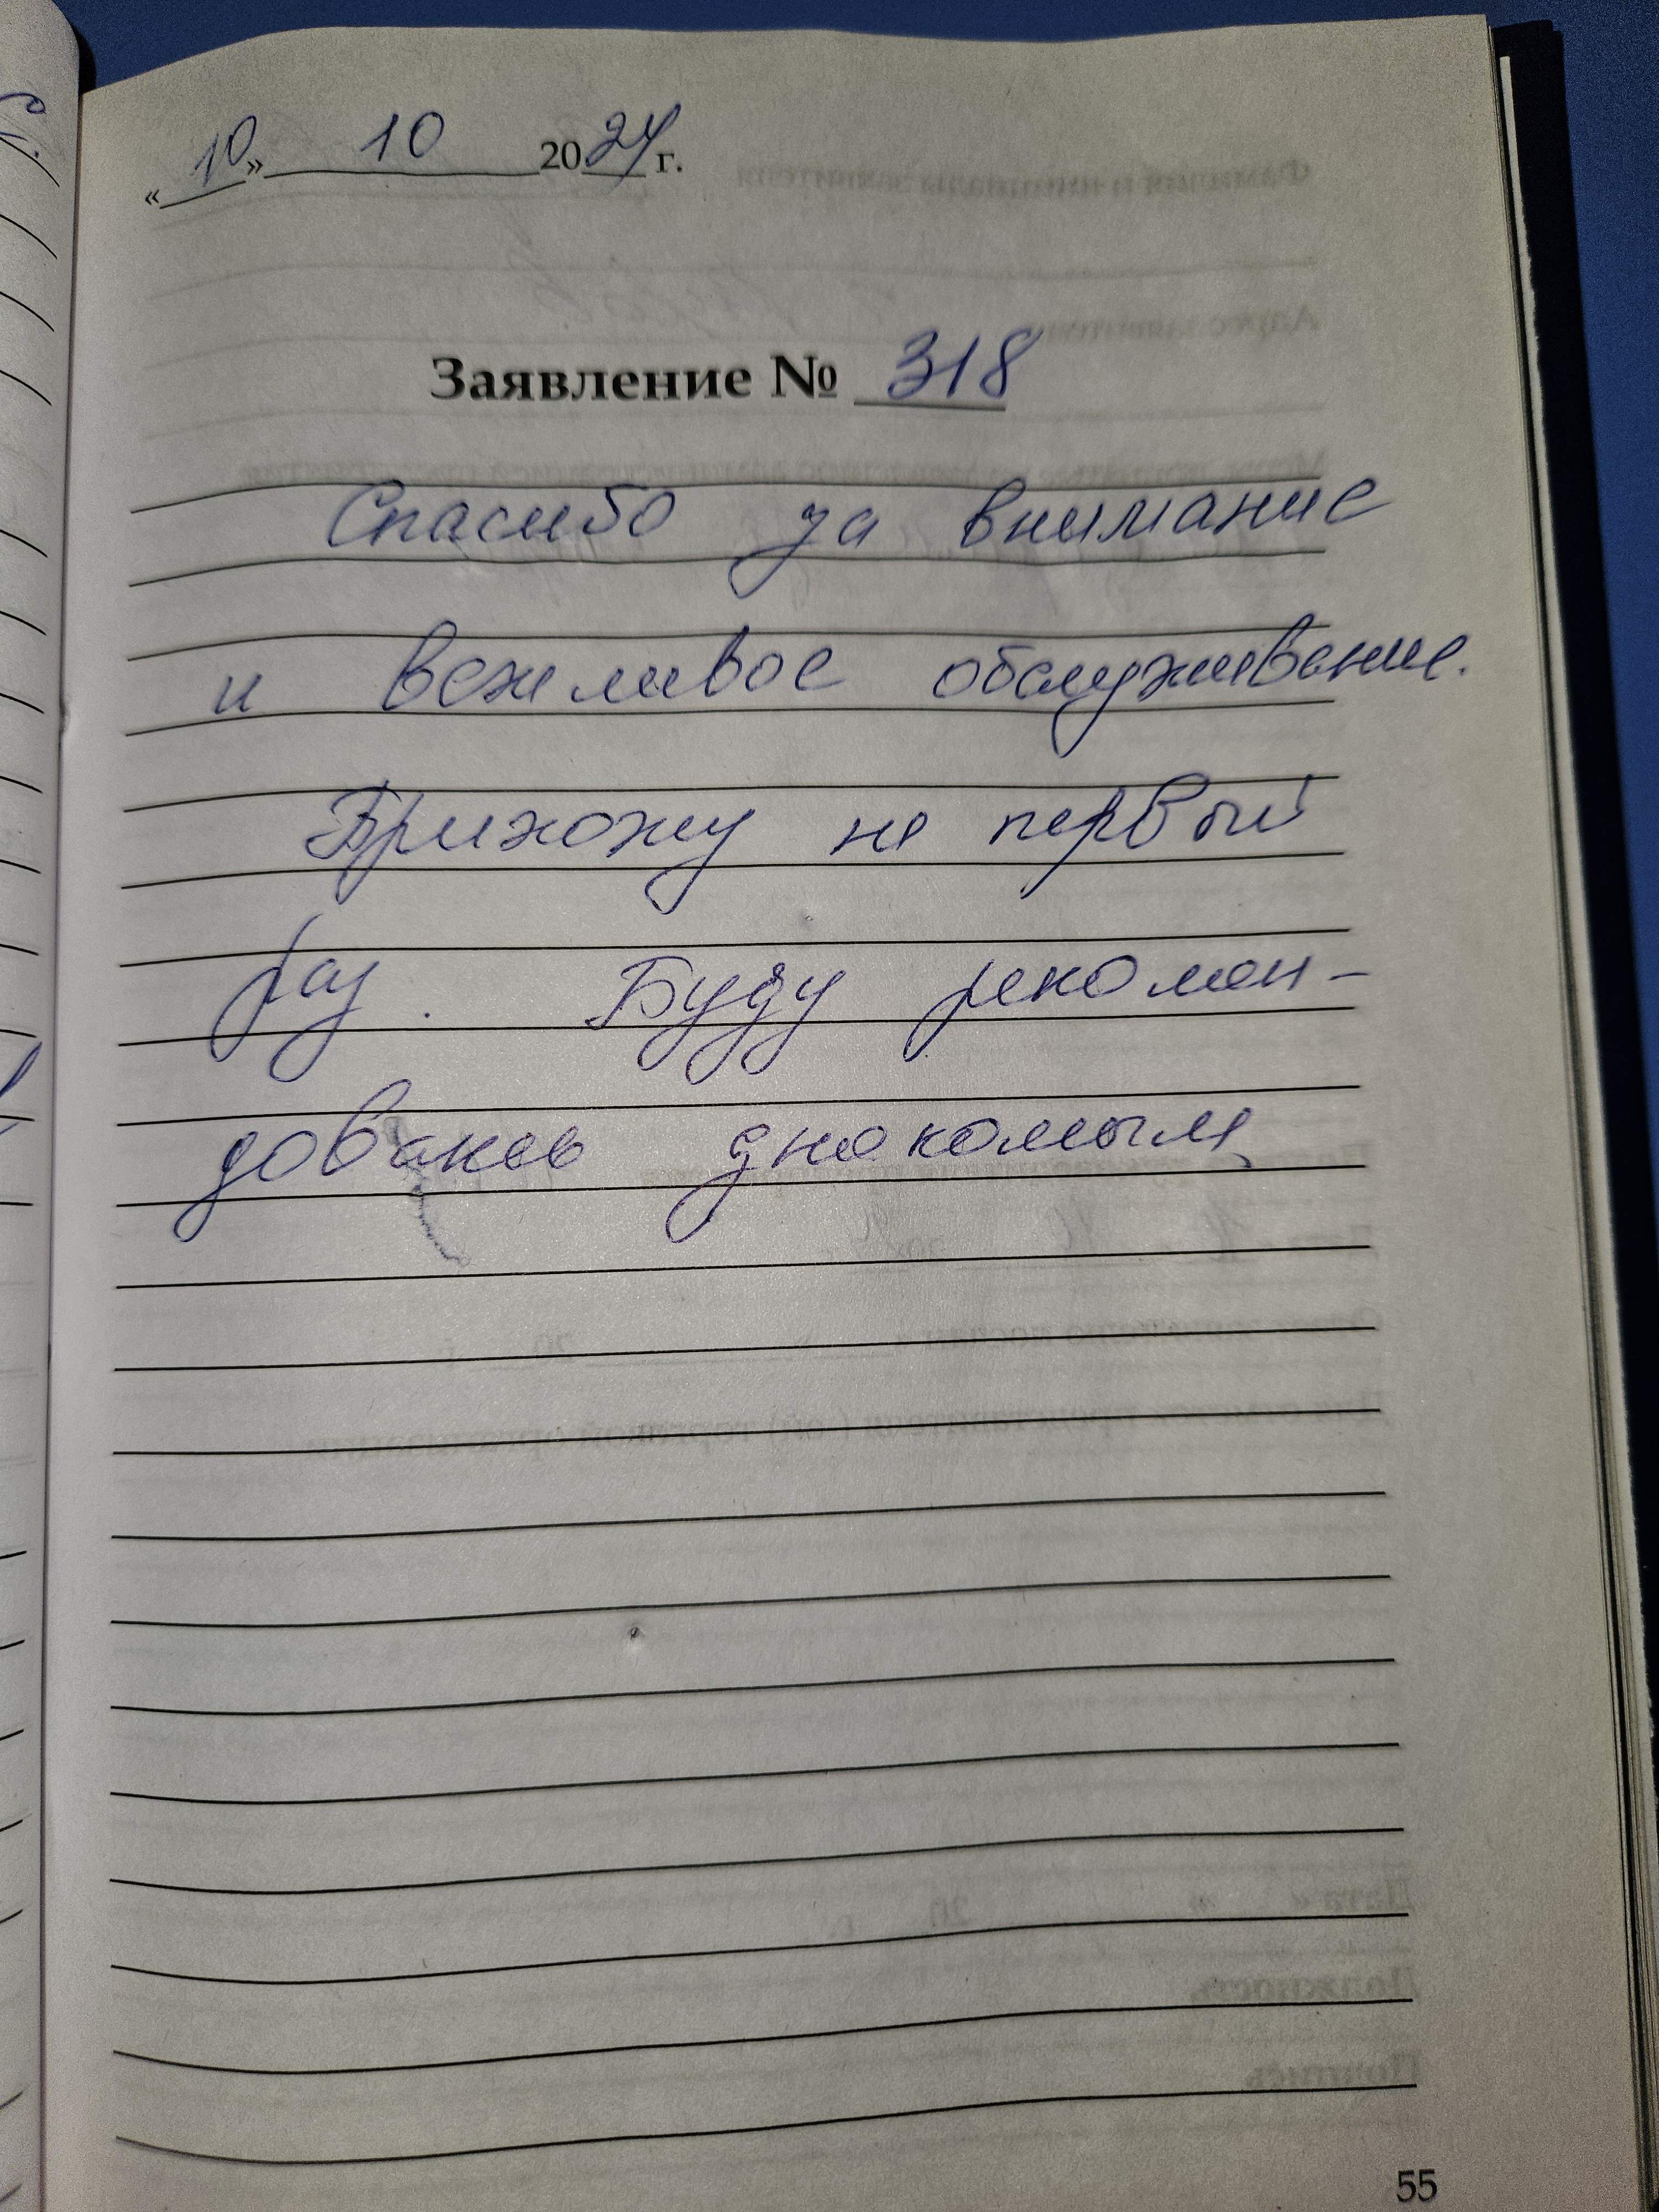 «10» 10 2024 г.
Заявление № 318
Спасибо за внимание
и вежливое обслуживание.
Прихожу не первый
раз. Буду рекомен-
довать знакомым
55